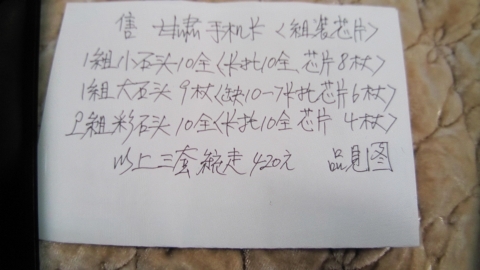 售 甘肃手机卡〈組装芯片〉
1組小石头10全〈卡托10全 芯片8杖〉
1組大石头9杖〈缺10-7卡托芯片6杖〉
2組彩石头10全〈卡托10全 芯片4杖〉
以上三套統走420元 品見图